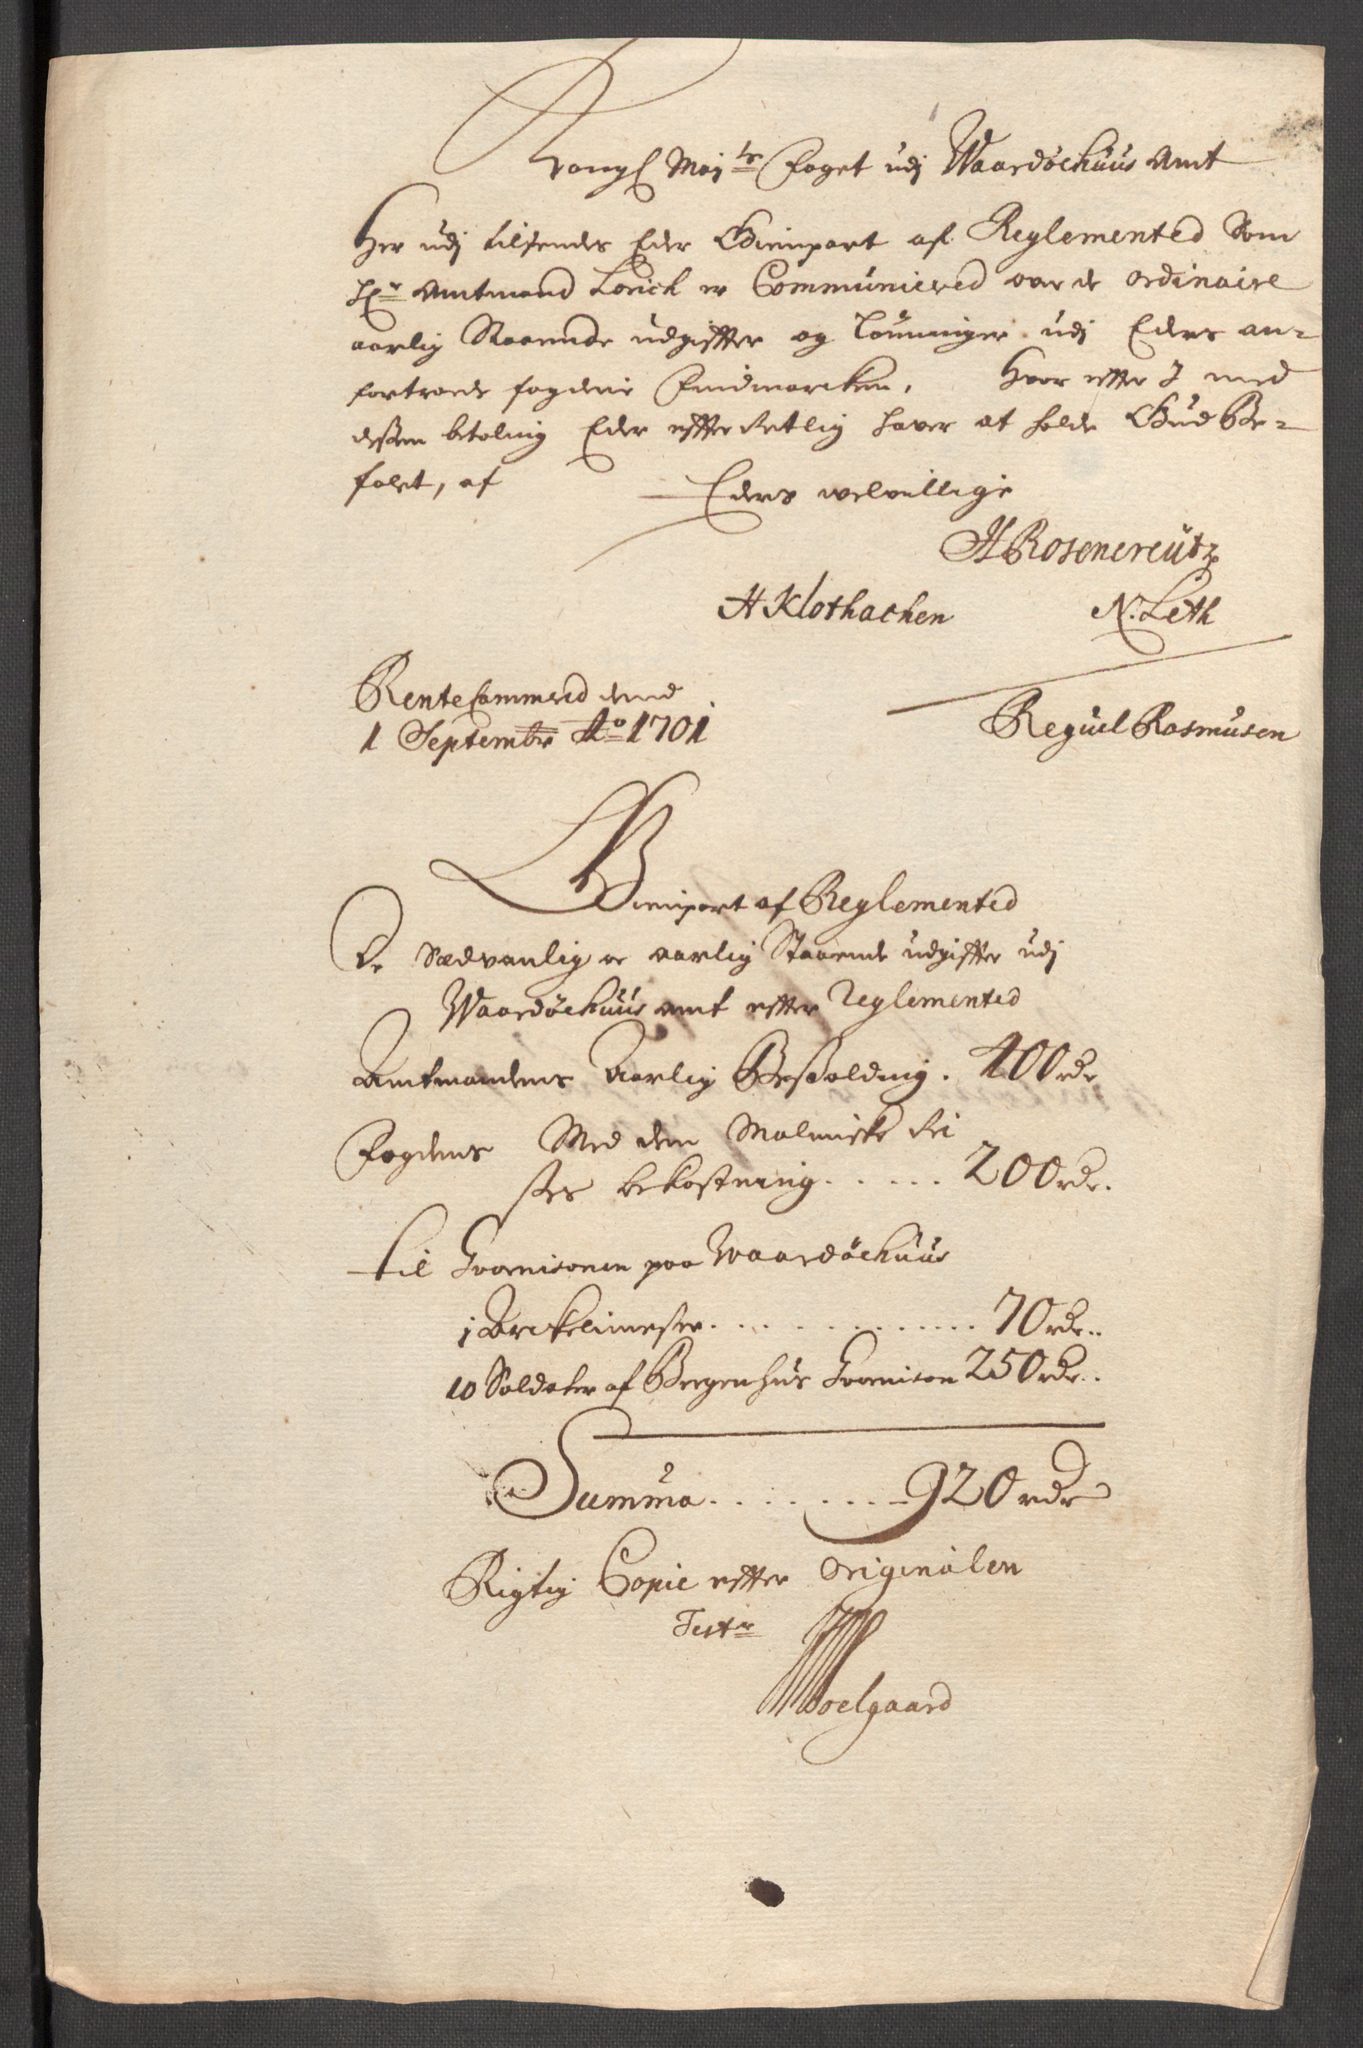 Kongl Mayts Foget udj Waardöehuus Amt
Her udj tilsendes Eder Gienpart af Reglemented Som
Hr Amtmand Lorich er Communicered over de ordinaire
aarlig Staaende udgiffter og Lönninger udj Eders an-
fortroede fogderie Findmarcken, Hvor effter I med
dessen betaling Eder effterretlig haver at holde Gud Be-
falet, af Eders velvillige
H Rosencreütz
H Klothachen N. Leth
RenteCammered dend
1 Septembr Ao 1701
Reguel Rasmusen
Gienpart af Reglemented
De Sædvanlig oc aarlig Staaende udgiffter udj
Waardöehuus amt effter Reglemented
Amtmandens Aarlig Besolding. 400 rdr
Fogdens Med den Malmiske Rei
ses bekostning..... 200 rdr.
til Guarnisonen paa Waardöehuus
1 Arckelimester............. 70 rdr..
10 Soldater af Bergenhus Guarnison 250 rdr..
Summa........ 920 rdr
Rigtig Copie effter Originalen
Test
Woelgaard